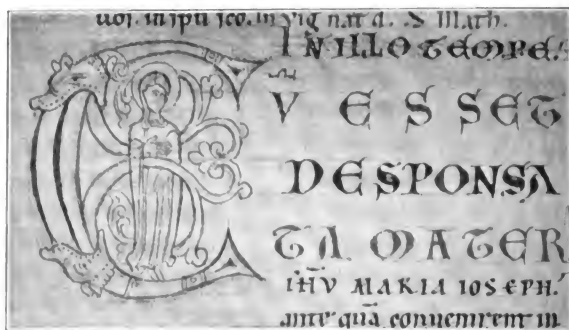 in vig nat d. S Math.
IN ILLO TEMPE.
C V ESSET
DESPONSA
TA MATER
IHV MARIA IOSEPH.
ante quā conuenirent in